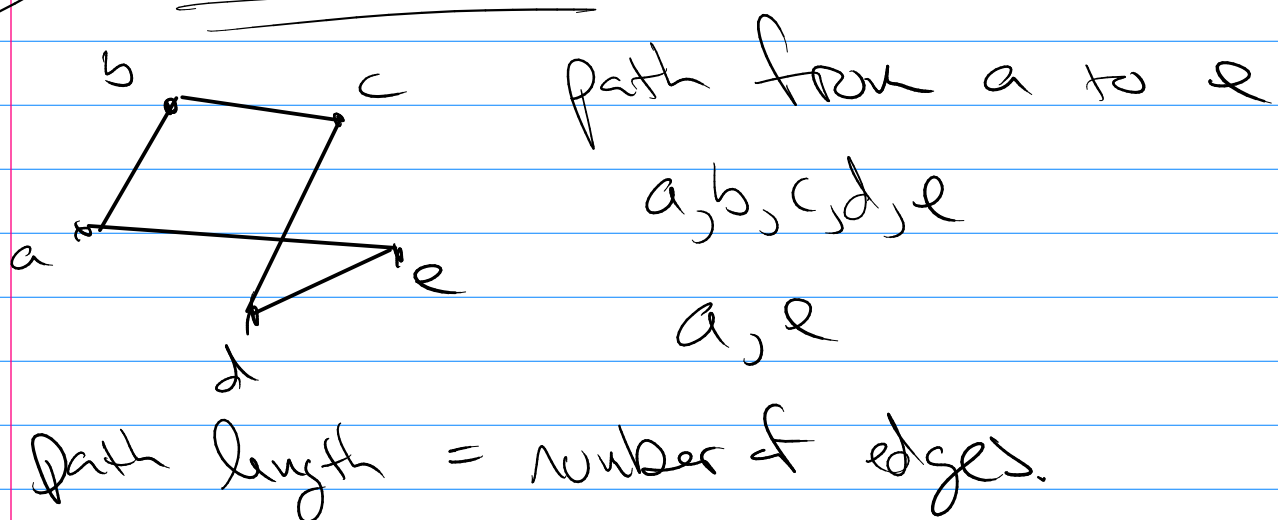 b
c
path from a to e
a, b, c, d, e
a
e
a, e
d
path length = number of edges.